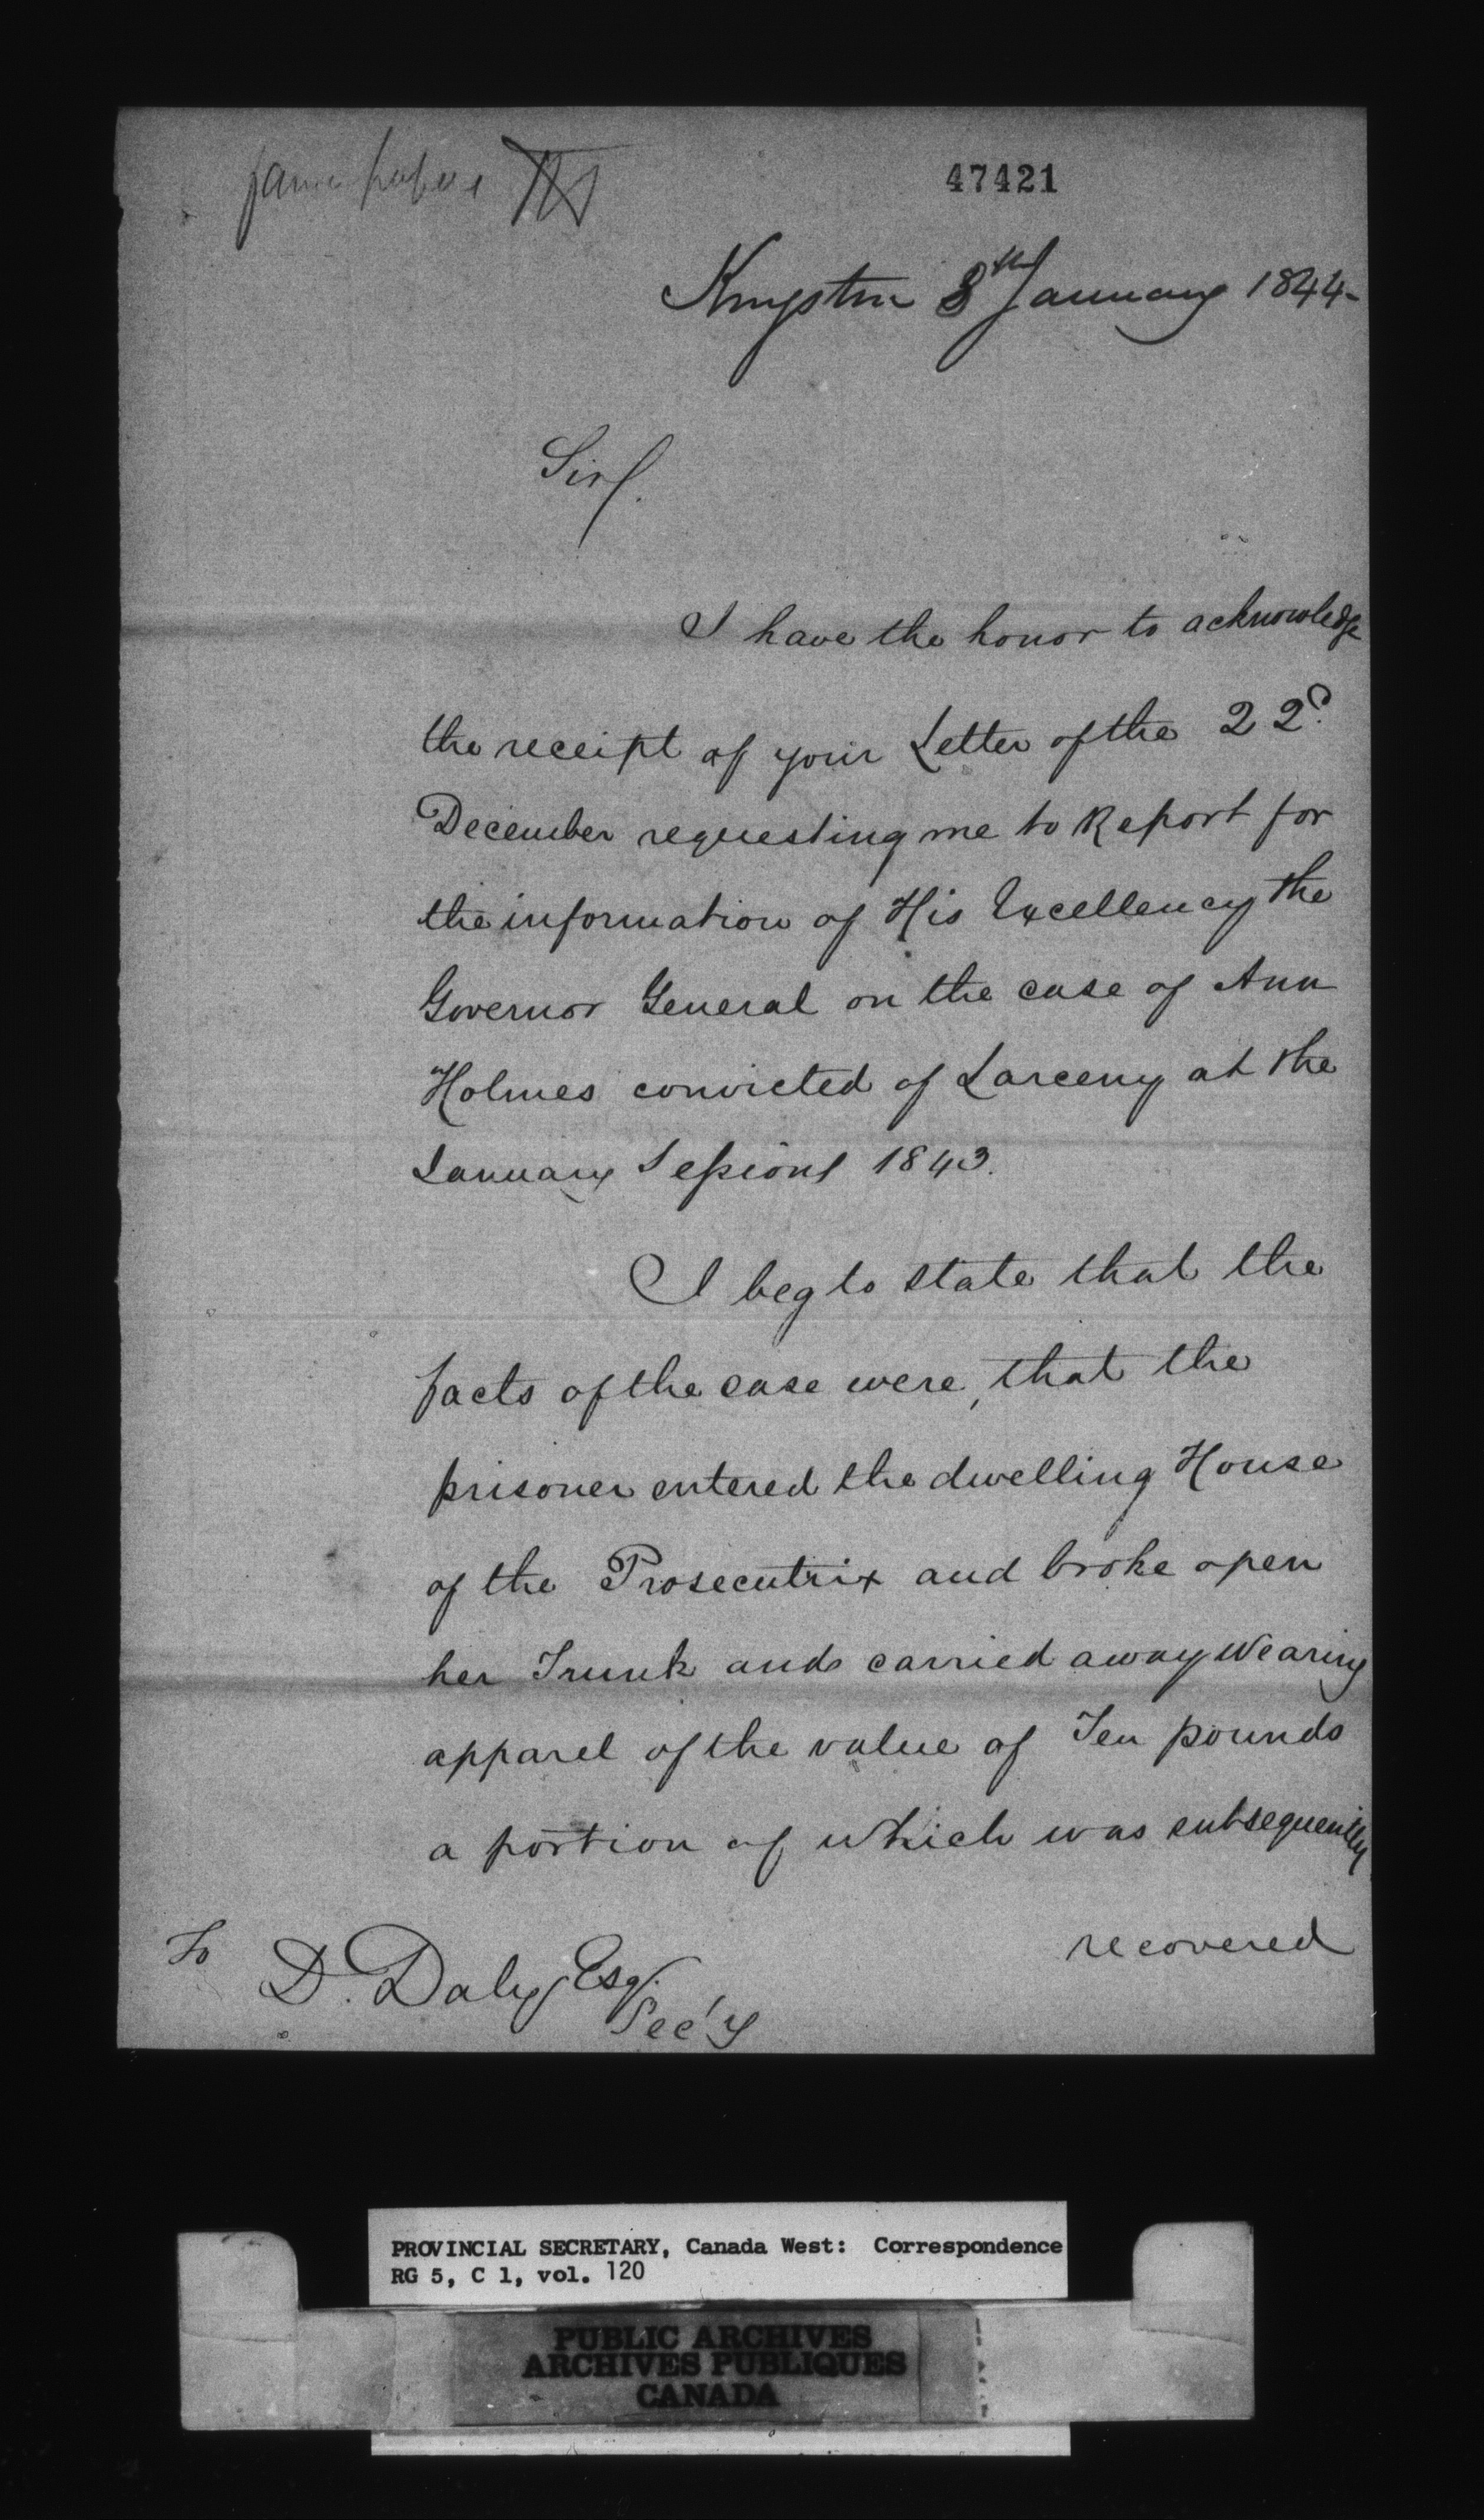 47421
Kingston 8th January 1844-
Sir/.
I have the honor to acknowledge
the receipt of your Letter of the 22d.
December requesting me to Report for
the information of His Excellency the
Governor General on the case of Ann
Holmes convicted of Larceny at the
January Sessions 1843.
I beg to state that the
facts of the case were, that the
prisoner entered the dwelling House
of the Prosecutrix and broke open
her Trunk and carried away Wearing
apparel of the value of Ten pounds
a portion of which was subsequently
recovered
To D. Daly Esq.
Sec'y
PROVINCIAL SECRETARY, Canada West: Correspondence
RG 5, C 1, vol. 120
PUBLIC ARCHIVES
ARCHIVES PUBLIQUES
CANADA